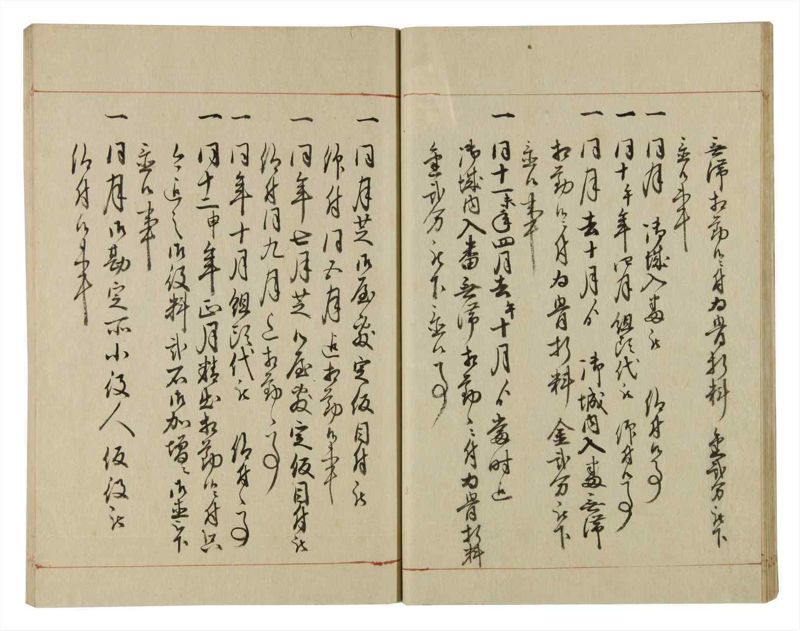 無滞相勤候ニ付為骨折料 金弐分被下
置候事
一 同月 御城入番被 仰付候事
一 同十午年四月組頭代被 仰付候事
一 同月去十月ゟ 御城内入番無滞
相勤候ニ付為骨折料 金弐分被下
置候事
一 同十一未年四月去午十月ゟ当時迄
御城内入番無滞相勤候ニ付為骨折料
金弐分被下置候事
一 同月芝御屋敷定仮目付被
仰付同五月迄相勤候事
一 同年七月芝御屋敷定仮目付被
仰付同九月迄相勤候事
一 同年十月組頭代被 仰付候事
一 同十二申年正月精出相勤候ニ付只
今迄之御役料弐石御加増ニ御直被下
置候事
一 同月御勘定所小役人仮役被
仰付候事